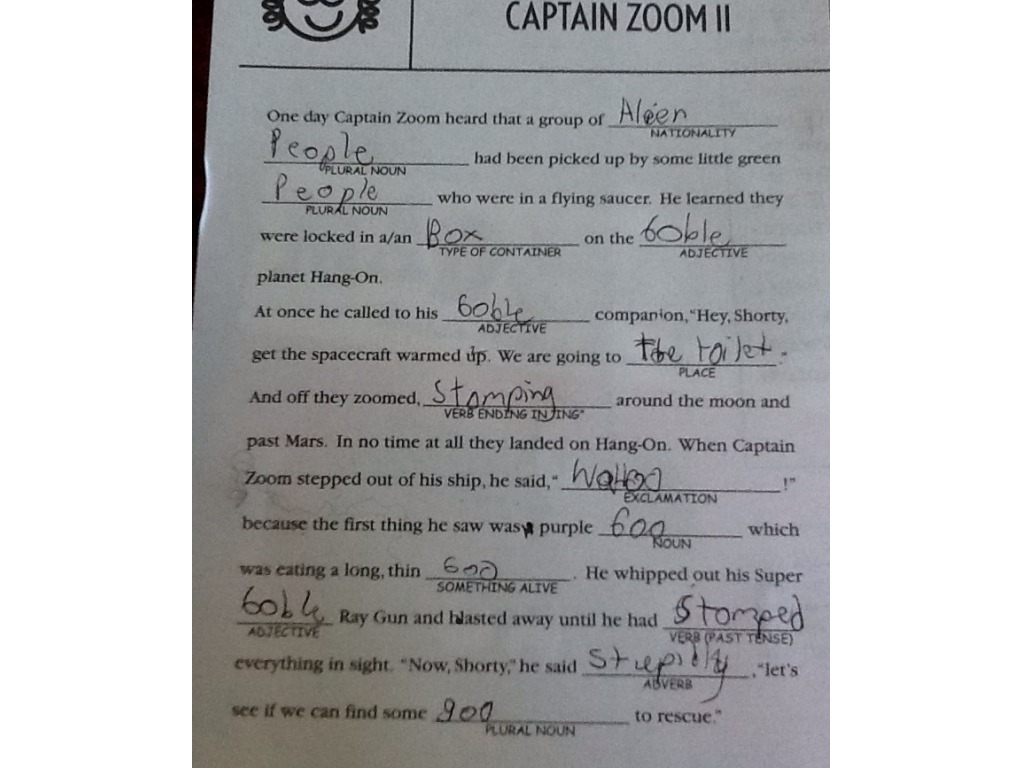 CAPTAIN ZOOM II
One day Captain Zoom heard that a group of Aleen
NATIONALITY
People had been picked up by some little green
PLURAL NOUN
People who were in a flying saucer. He learned they
PLURAL NOUN
were locked in a/an Box on the Goble
TYPE OF CONTAINER ADJECTIVE
planet Hang-On.
At once he called to his Goble companion, "Hey, Shorty,
ADJECTIVE
get the spacecraft warmed up. We are going to the toilet."
PLACE
And off they zoomed, Stomping around the moon and
VERB ENDING IN "ING"
past Mars. In no time at all they landed on Hang-On. When Captain
Zoom stepped out of his ship, he said, " !"
EXCLAMATION
because the first thing he saw was purple Goo which
NOUN
was eating a long, thin Goo . He whipped out his Super
SOMETHING ALIVE
Goble Ray Gun and blasted away until he had Stomped
ADJECTIVE VERB (PAST TENSE)
everything in sight. "Now, Shorty," he said Stupidly, "let's
ADVERB
see if we can find some goo to rescue."
PLURAL NOUN